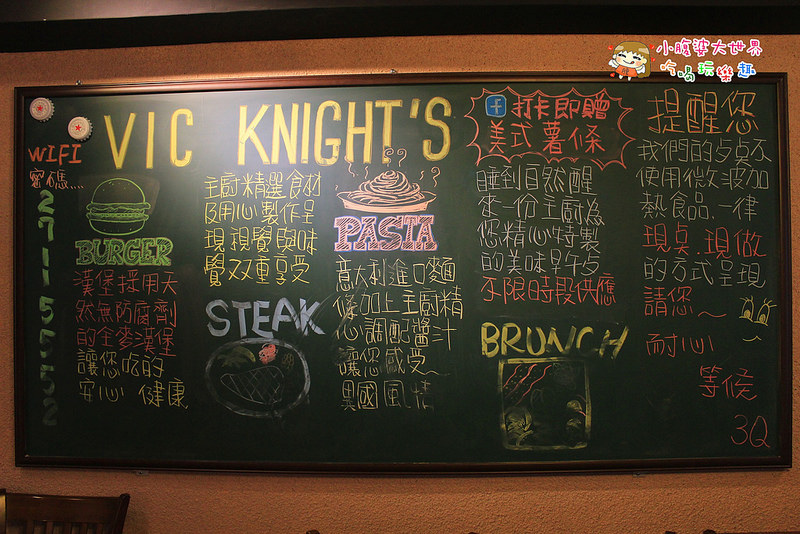 小腹婆大世界
吃喝玩樂趣
VIC KNIGHT'S
WIFI
密碼....
2
7
1
1
5
5
5
2
BURGER
漢堡採用天
然無防腐劑
的全麥漢堡
讓您吃的
安心 健康
主廚精選食材
用心製作呈
現視覺與味
覺双重享受
STEAK
PASTA
意大利進口麵
條加上主廚精
心調配醬汁
讓您感受~
異國風情
f 打卡即贈
美式薯條
睡到自然醒
來一份主廚為
您精心特製
的美味早午歺
不限時段供應
BRUNCH
提醒您
我們的歺點不
使用微波加
熱食品.一律
現点.現做
的方式呈現
請您~
耐心
等候
3Q